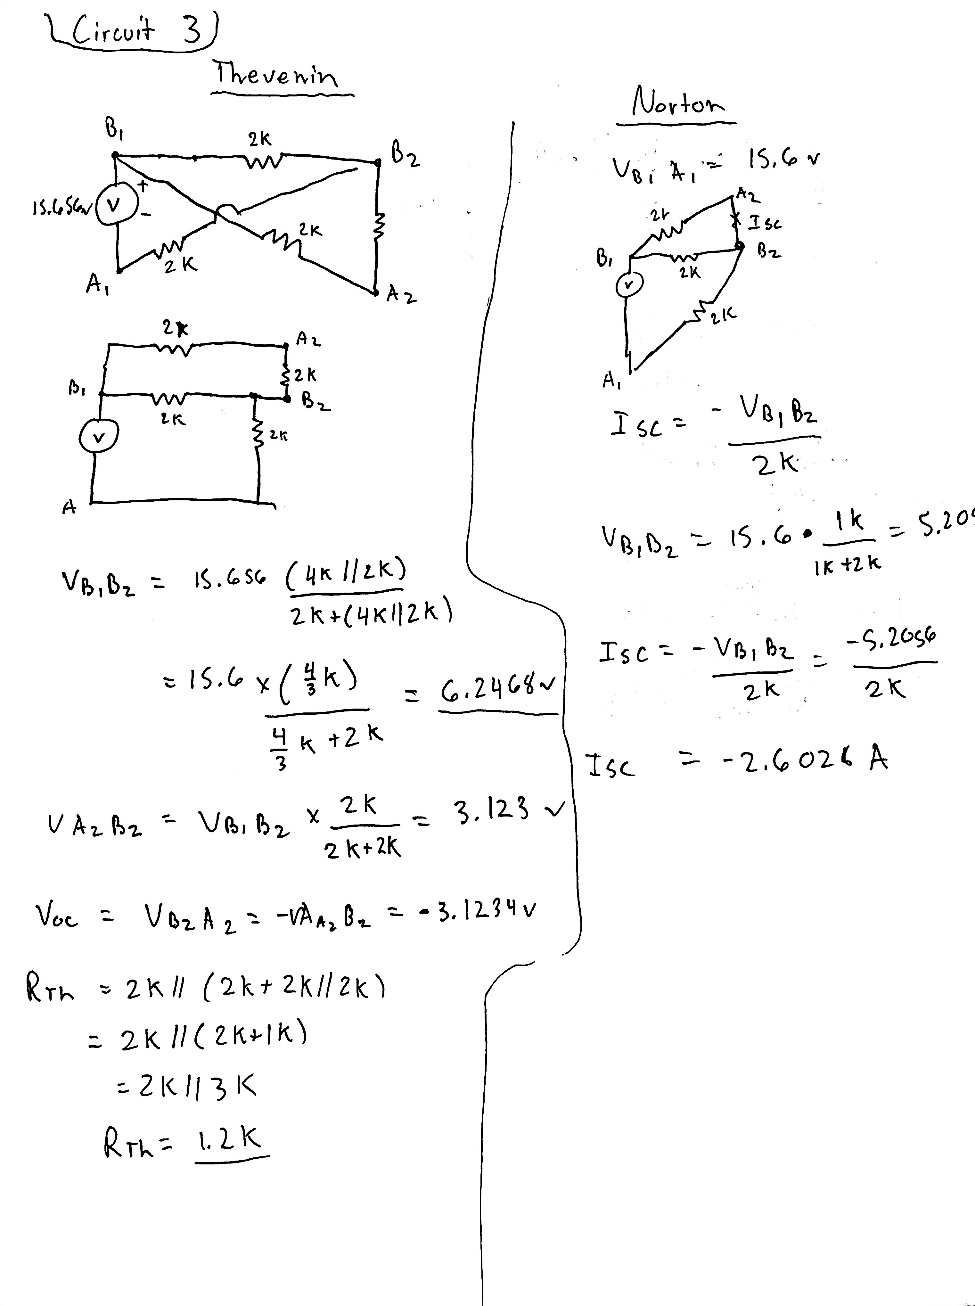 Circuit 3
Thevenin
B1
2K
B2
15.656v
V
+
-
2K
2K
A1
A2
2K
A2
2K
B1
B2
2K
V
2K
A
VB1B2 = 15.656 (4K//2K) / 2K+(4K//2K)
= 15.6 x (4/3 K) / 4/3 K + 2K = 6.2468v
VA2B2 = VB1B2 x 2K / 2K+2K = 3.123 v
Voc = VB2A2 = -VA2B2 = -3.1234v
RTh = 2K// (2K+ 2K//2K)
= 2K//(2K+1K)
= 2K//3K
RTh = 1.2K
Norton
VB1A1 = 15.6 v
A2
2K
Isc
B1
2K
B2
V
2K
A1
Isc = - VB1B2 / 2K
VB1B2 = 15.6 • 1K / 1K+2K = 5.20
Isc = - VB1B2 / 2K = -5.2056 / 2K
Isc = -2.6028 A